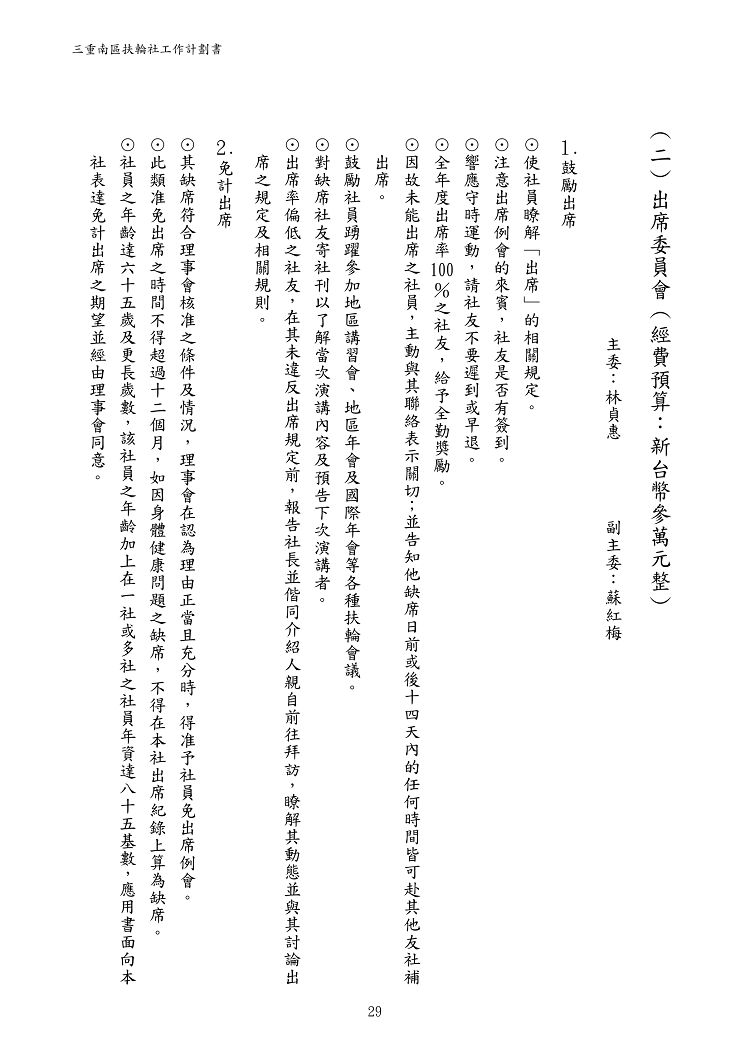 三重南區扶輪社工作計劃書
（二）出席委員會（經費預算：新台幣參萬元整）
主委：林貞惠　副主委：蘇紅梅
1.鼓勵出席
⊙使社員瞭解「出席」的相關規定。
⊙注意出席例會的來賓，社友是否有簽到。
⊙響應守時運動，請社友不要遲到或早退。
⊙全年度出席率100％之社友，給予全勤獎勵。
⊙因故未能出席之社員，主動與其聯絡表示關切；並告知他缺席日前或後十四天內的任何時間皆可赴其他友社補
出席。
⊙鼓勵社員踴躍參加地區講習會、地區年會及國際年會等各種扶輪會議。
⊙對缺席社友寄社刊以了解當次演講內容及預告下次演講者。
⊙出席率偏低之社友，在其未違反出席規定前，報告社長並偕同介紹人親自前往拜訪，瞭解其動態並與其討論出
席之規定及相關規則。
2.免計出席
⊙其缺席符合理事會核准之條件及情況，理事會在認為理由正當且充分時，得准予社員免出席例會。
⊙此類准免出席之時間不得超過十二個月，如因身體健康問題之缺席，不得在本社出席紀錄上算為缺席。
⊙社員之年齡達六十五歲及更長歲數，該社員之年齡加上在一社或多社之社員年資達八十五基數，應用書面向本
社表達免計出席之期望並經由理事會同意。
29